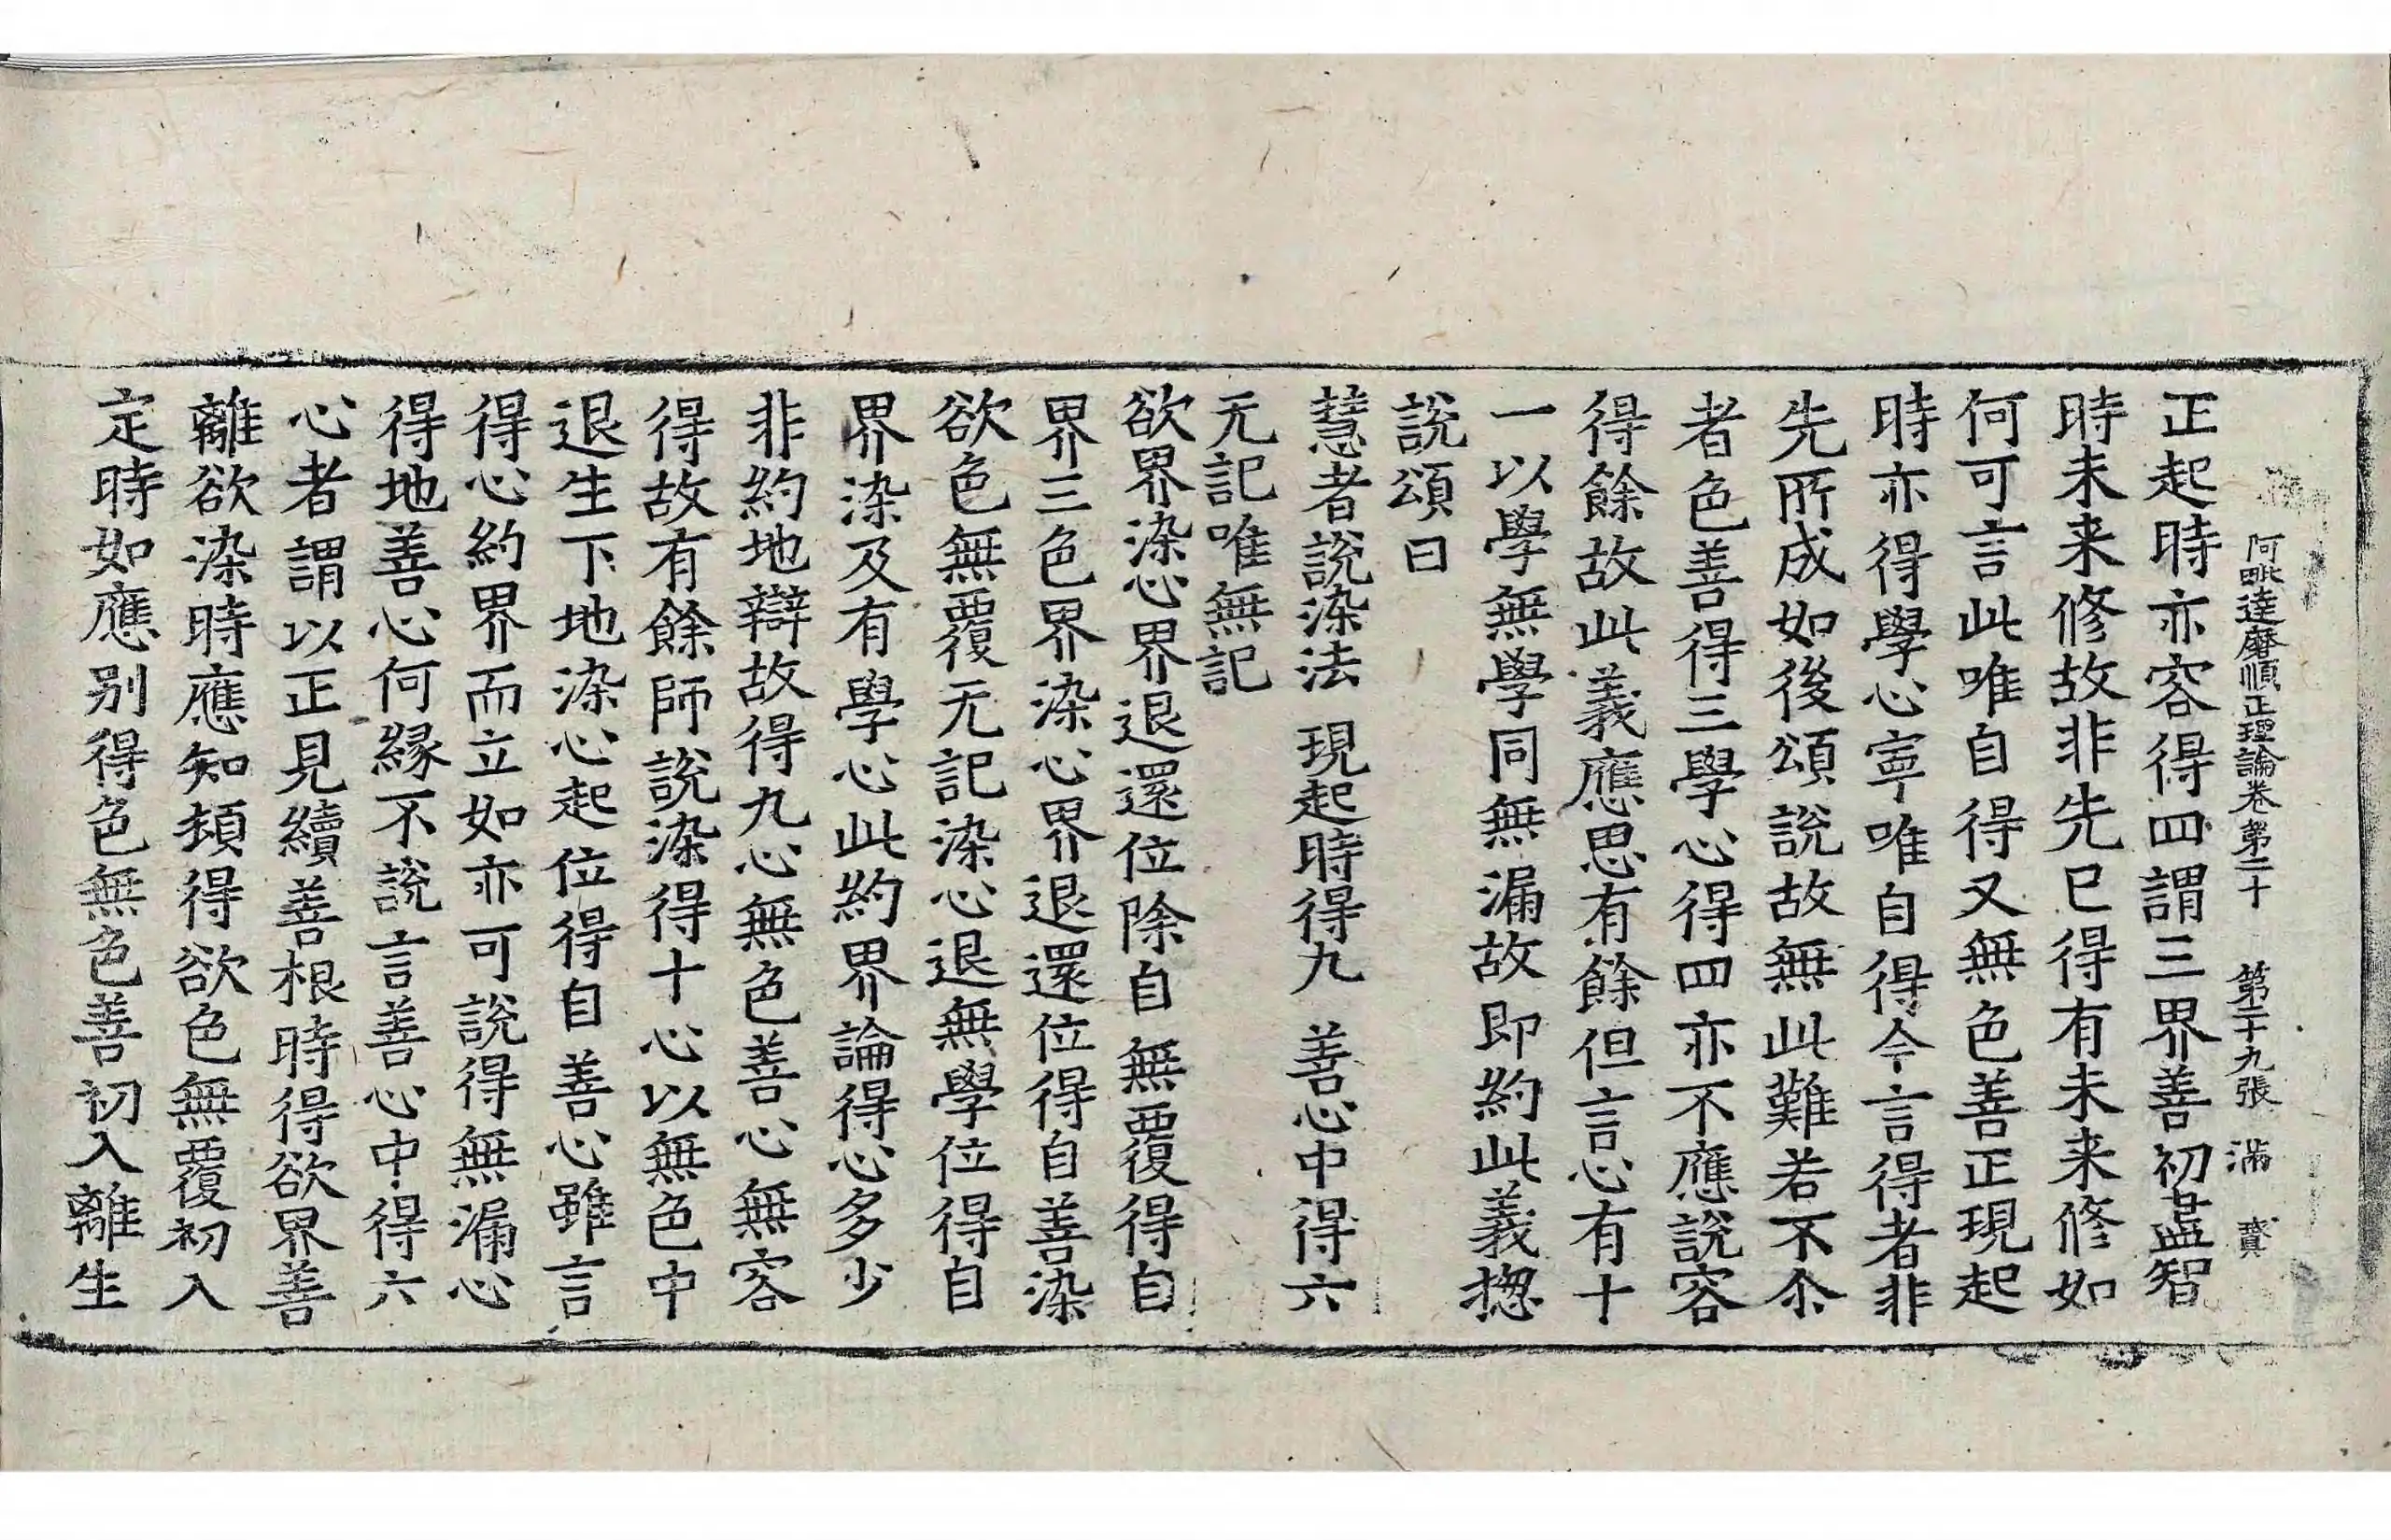 阿毗達磨順正理論卷第二十 第二十九張 滿 賷
正起時亦容得四謂三界善初盡智
時未来修故非先已得有未来修如
何可言此唯自得又無色善正現起
時亦得學心寧唯自得今言得者非
先所成如後頌說故無此難若不尒
者色善得三學心得四亦不應說容
得餘故此義應思有餘但言心有十
一以學無學同無漏故即約此義揔
說頌曰
慧者說染法 現起時得九 善心中得六
无記唯無記
欲界染心界退還位除自無覆得自
界三色界染心界退還位得自善染
欲色無覆无記染心退無學位得自
界染及有學心此約界論得心多少
非約地辯故得九心無色善心無容
得故有餘師說染得十心以無色中
退生下地染心起位得自善心雖言
得心約界而立如亦可說得無漏心
得地善心何緣不說言善心中得六
心者謂以正見續善根時得欲界善
離欲染時應知頓得欲色無覆初入
定時如應别得色無色善初入離生